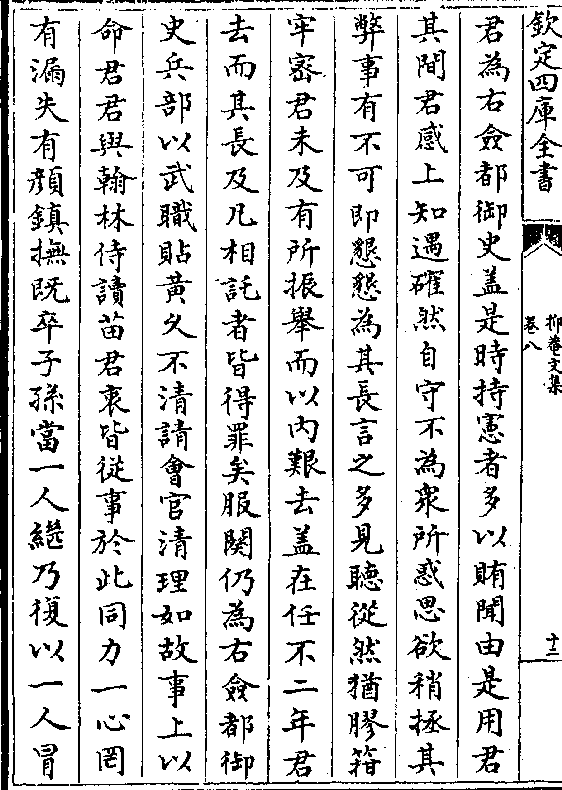 欽定四庫全書
抑菴文集
卷八
十三
君為右僉都御史盖是時持憲者多以賄聞由是用君
其間君感上知遇確然自守不為衆所惑思欲稍拯其
弊事有不可即懇懇為其長言之多見聽從然猶膠箱
牢密君未及有所振舉而以内艱去盖在任不二年君
去而其長及凡相託者皆得罪矣服闋仍為右僉都御
史兵部以武職貼黄乆不清請會官清理如故事上以
命君君與翰林侍讀苗君衷皆從事於此同力一心罔
有漏失有顔鎮撫既卒子孫當一人繼乃復以一人冒